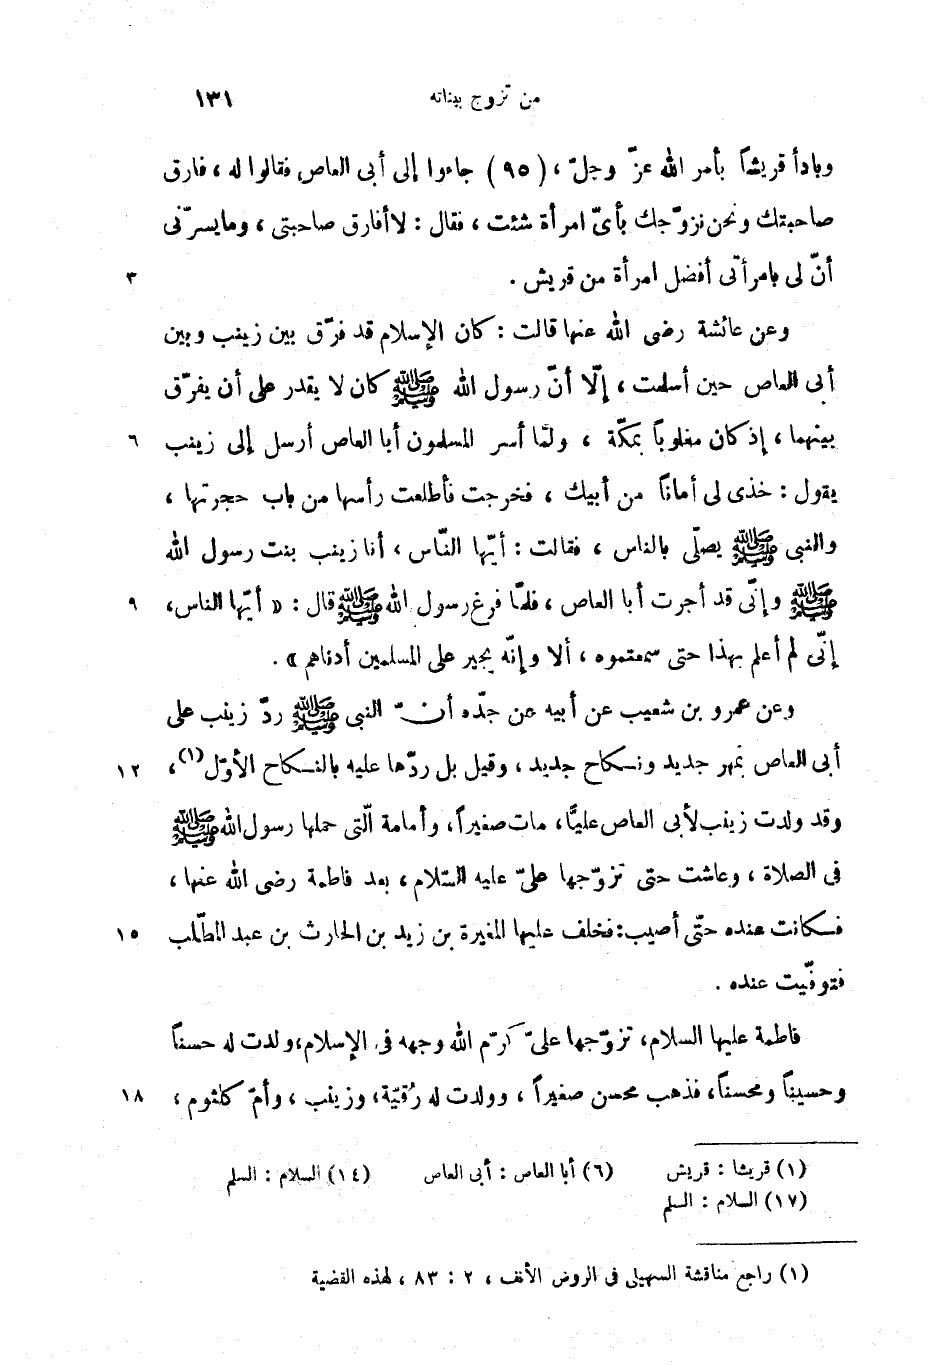 من تزوج ببناته ١٣١
وبادأ قريشاً بأمر الله عزّ وجلّ ، (٩٥) جاءوا إلى أبى العاص فقالوا له ، فارق
صاحبتك ونحن نزوّجك بأىّ امرأة شئت ، فقال : لا أفارق صاحبتى ، وما يسرّنى
أنّ لى بامرأتى أفضل امرأة من قريش . ٣
وعن عائشة رضى الله عنها قالت : كان الإسلام قد فرّق بين زينب وبين
أبى العاص حين أسلمت ، إلّا أنّ رسول الله ﷺ كان لا يقدر على أن يفرّق
بينهما ، إذ كان مغلوباً بمكّة ، ولمّا أسر المسلمون أبا العاص أرسل إلى زينب ٦
يقول : خذى لى أماناً من أبيك ، فخرجت فأطلعت رأسها من باب حجرتها ،
والنبى ﷺ يصلّى بالناس ، فقالت : أيّها النّاس ، أنا زينب بنت رسول الله
ﷺ وإنّى قد أجرت أبا العاص ، فلمّا فرغ رسول الله ﷺ قال : « أيّها الناس ، ٩
إنّى لم أعلم بهذا حتى سمعتموه ، ألا وإنّه يجير على المسلمين أدناهم » .
وعن عمرو بن شعيب عن أبيه عن جدّه أنّ النبى ﷺ ردّ زينب على
أبى العاص بمهر جديد ونكاح جديد ، وقيل بل ردّها عليه بالنكاح الأوّل (١) ، ١٢
وقد ولدت زينب لأبى العاص عليًّا ، مات صغيراً ، وأمامة الّتى حملها رسول الله ﷺ
فى الصلاة ، وعاشت حتى تزوّجها علىّ عليه السّلام ، بعد فاطمة رضى الله عنها ،
فكانت عنده حتّى أصيب : فخلف عليها المغيرة بن زيد بن الحارث بن عبد المطّلب ١٥
فتوفّيت عنده .
فاطمة عليها السلام ، تزوّجها علىّ كرّم الله وجهه فى الإسلام ، ولدت له حسناً
وحسيناً ومحسناً ، فذهب محسن صغيراً ، وولدت له رُقيّة ، وزينب ، وأمّ كلثوم ، ١٨
(١) قريشا : قريش (٦) أبا العاص : أبى العاص (١٤) السلام : السلم
(١٧) السلام : السلم
(١) راجع مناقشة السهيلى فى الروض الأنف ، ٢ : ٨٣ ، لهذه القضية